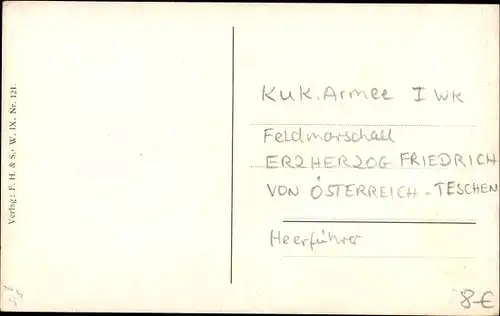 Verlag: F. H. & S., W. IX. Nr. 121.
KuK. Armee I WK
Feldmarschall
ERZHERZOG FRIEDRICH
VON ÖSTERREICH-TESCHEN
Heerführer
8-€